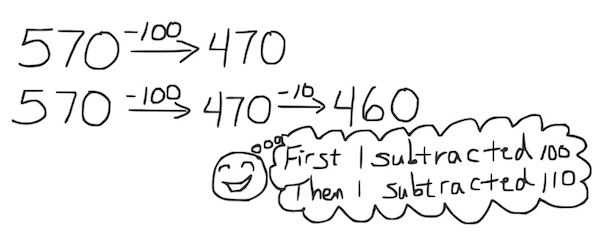 570 -100→ 470
570 -100→ 470 -10→ 460
First I subtracted 100
Then I subtracted 110